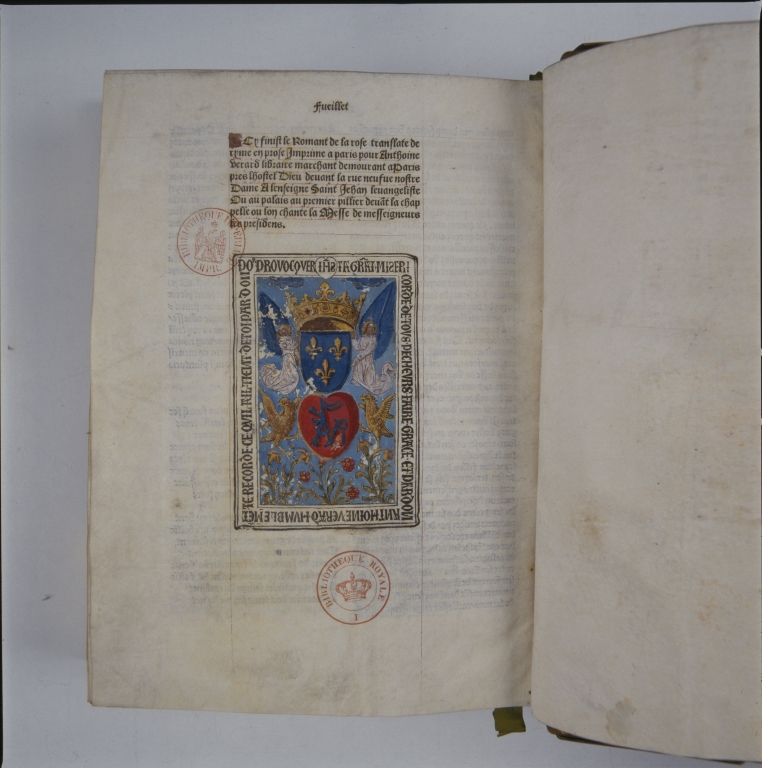 fueillet
Cy finist le Romant de la rose translate de
ryme en prose Imprime a paris pour Anthoine
verard libraire marchant demourant a Paris
pres lhostel Dieu devant la rue neufue nostre
Dame A lenseigne Saint Jehan leuangeliste
Ou au palais au premier pillier deuāt la chap
pelle ou lon chante la Messe de messeigneurs
les presidens.
MISERI
CORDE DE TOVS PECHEVRS FAIRE GRACE ET PARDON
HVMBLEMĒT
TE RECORDE CE QVIL
BIBLIOTHEQUE ROYALE
I